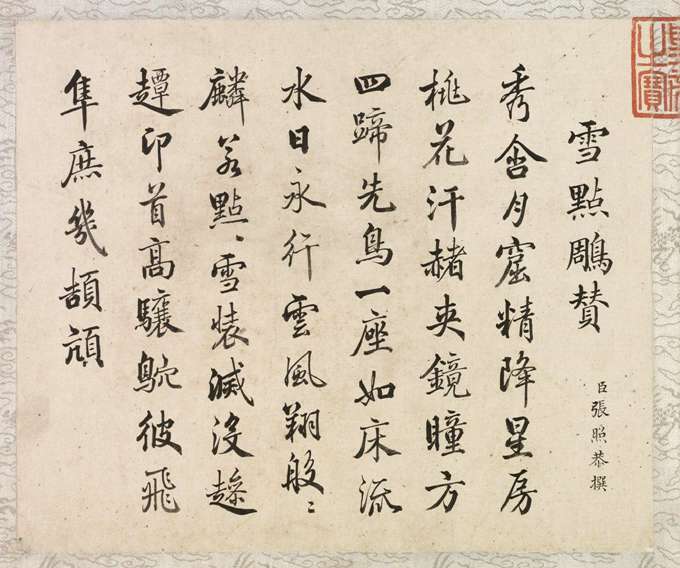 雪點鵰贊
臣張照恭撰
秀含月窟精降星房
桃花汗赭夾鏡瞳方
四蹄先鳥一座如床流
水日永行雲風翔般〻
麟若點〻雪裝滅沒
印首高驤鴥彼飛
隼庶幾頡頏
之寶